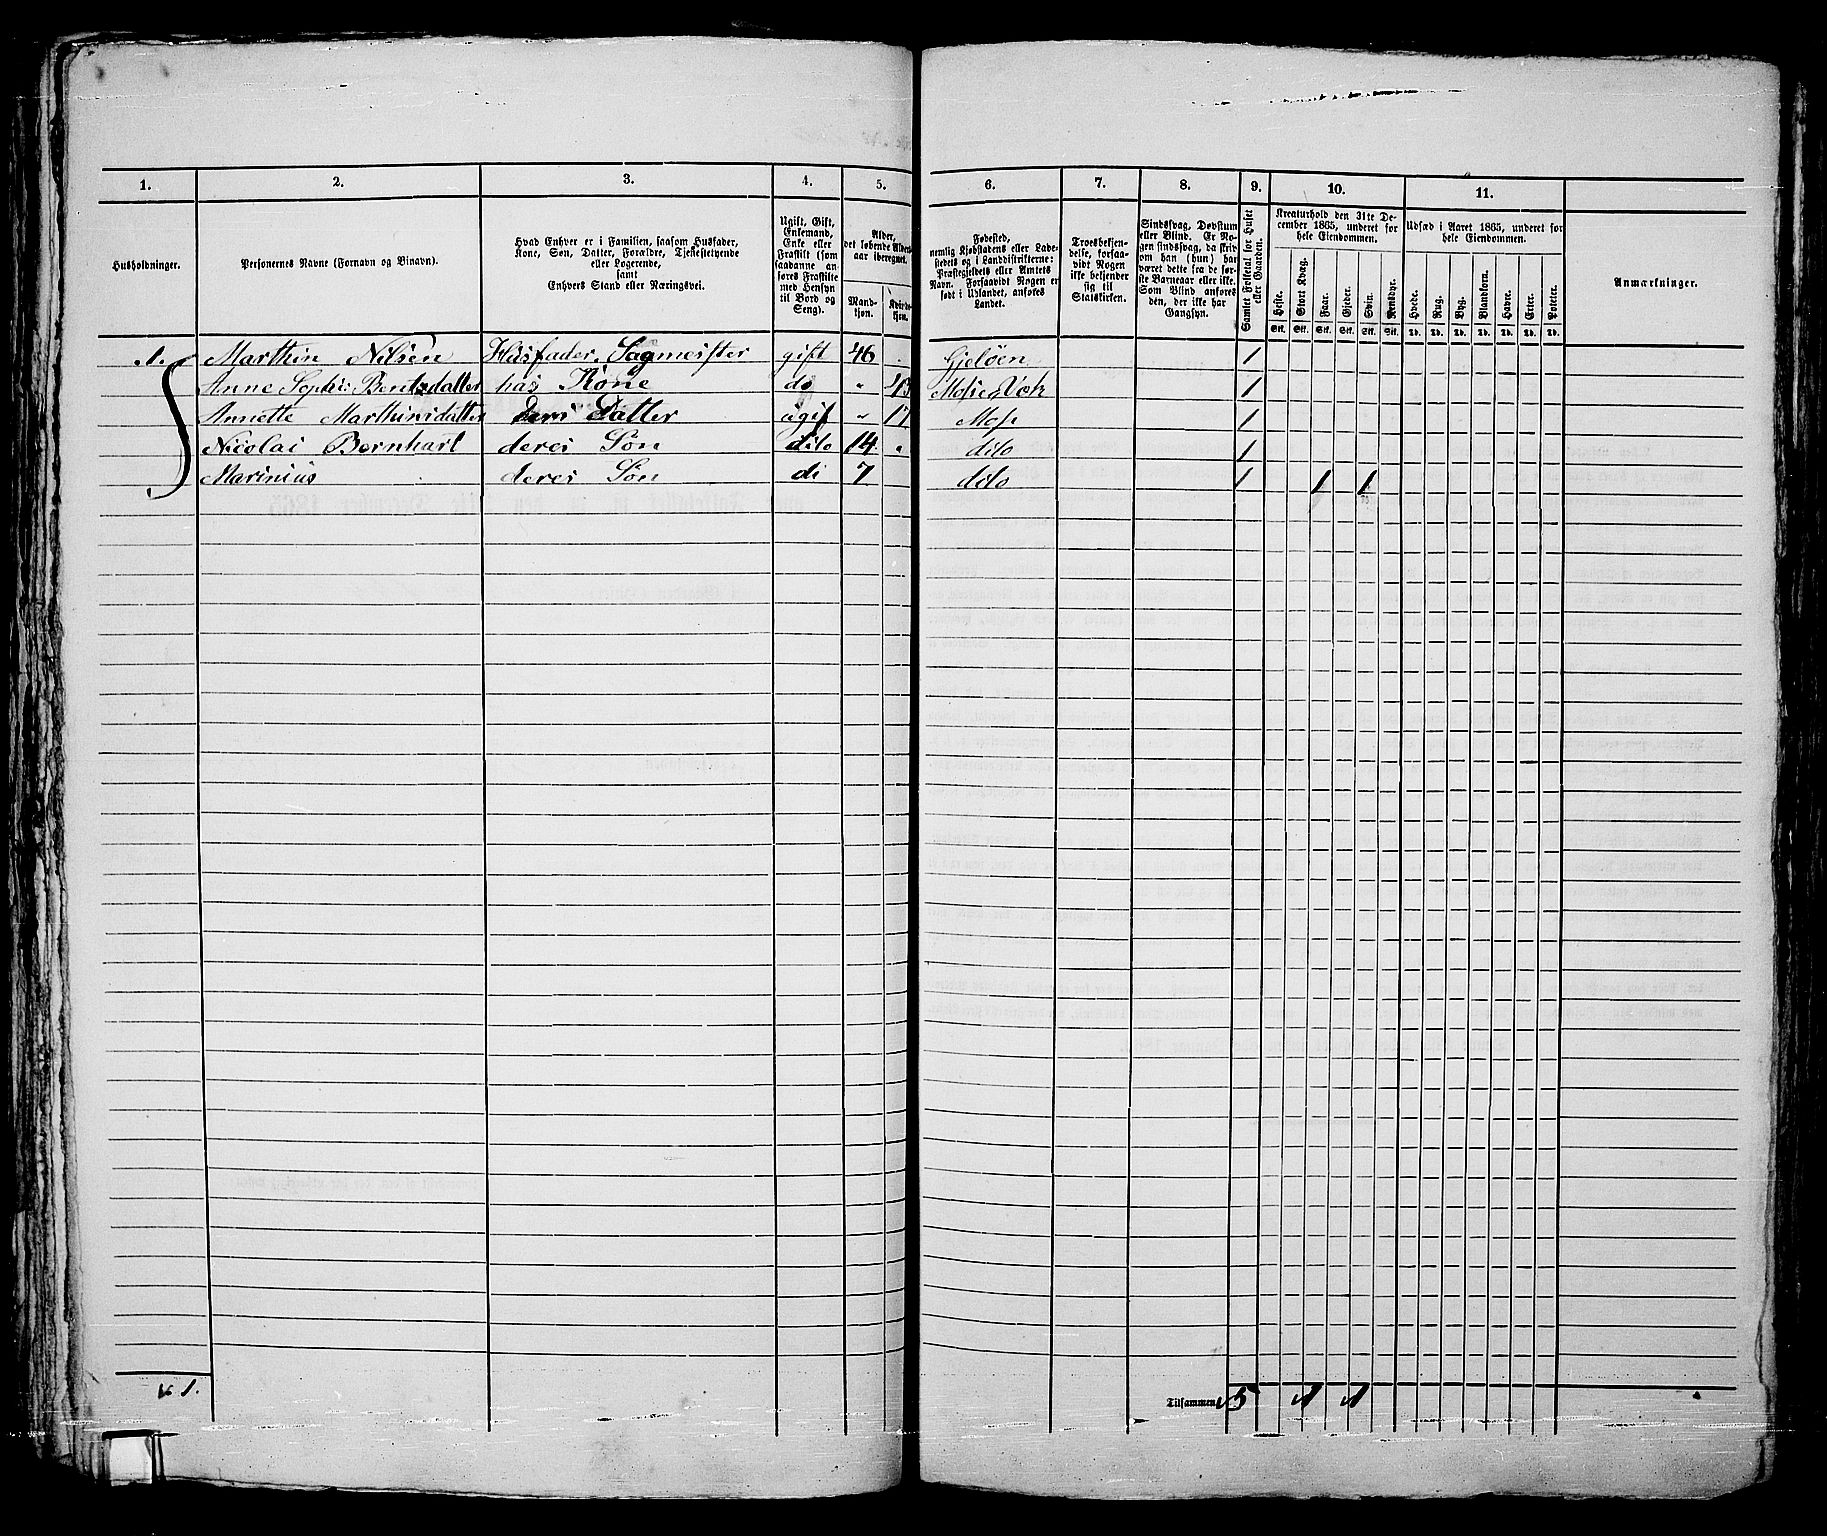 1. 2. 3. 4. 5. 6. 7. 8. 9. 10. 11.
Husholdninger.
Personernes Navne (Fornavn og Binavn).
Hvad Enhver er i Familien, saasom Husfader,
Kone, Søn, Datter, Forældre, Tjenestetyende
eller Logerende,
samt
Enhvers Stand eller Næringsvei.
Ugift, Gift,
Enkemand,
Enke eller
Fraskilt (som
saadanne an-
føres Fraskilte
med Hensyn
til Bord og
Seng).
Alder,
det løbende Alders-
aar iberegnet.
Mand-
kjøn.
Kvinde-
kjøn.
Fødested,
nemlig Kjøbstadens eller Lade-
stedets og i Landdistrikterne:
Præstegjeldets eller Amtets
Navn. Forsaavidt Nogen er
født i Udlandet, anføres
Landet.
Troesbekjen-
delse, forsaa-
vidt Nogen
ikke bekjender
sig til
Statskirken.
Sindssvag, Døvstum
eller Blind. Er No-
gen sindssvag, da skriv
om han (hun) har
været dette fra de før-
ste Barneaar eller ikke.
Som Blind anføres
den, der ikke har
Gangsyn.
Samlet Folketal for Huset
eller Gaarden.
Kreaturhold den 31te De-
cember 1865, underet for
hele Eiendommen.
Heste. Stort Kvæg. Faar. Gjeder. Svin. Rensdyr.
Stk. Stk. Stk. Stk. Stk. Stk.
Udsæd i Aaret 1865, underet for
hele Eiendommen.
Hvede. Rug. Byg. Blandkorn. Havre. Erter. Poteter.
Td. Td. Td. Td. Td. Td. Td.
Anmærkninger.
1. Marthin Nilsen Husfader. Sagmester gift 46 Gjeløen 1
Anne Sophie Berntsdatter has Kone do " 43 1
Annette Marthinsdatter Datter ugif " 17 Moss 1
Nicolai Bernhart deres Søn dito 14. " dito 1
Marinius deres Søn di 7 dito 1 1 1
1.
Tilsammen 5 1 1